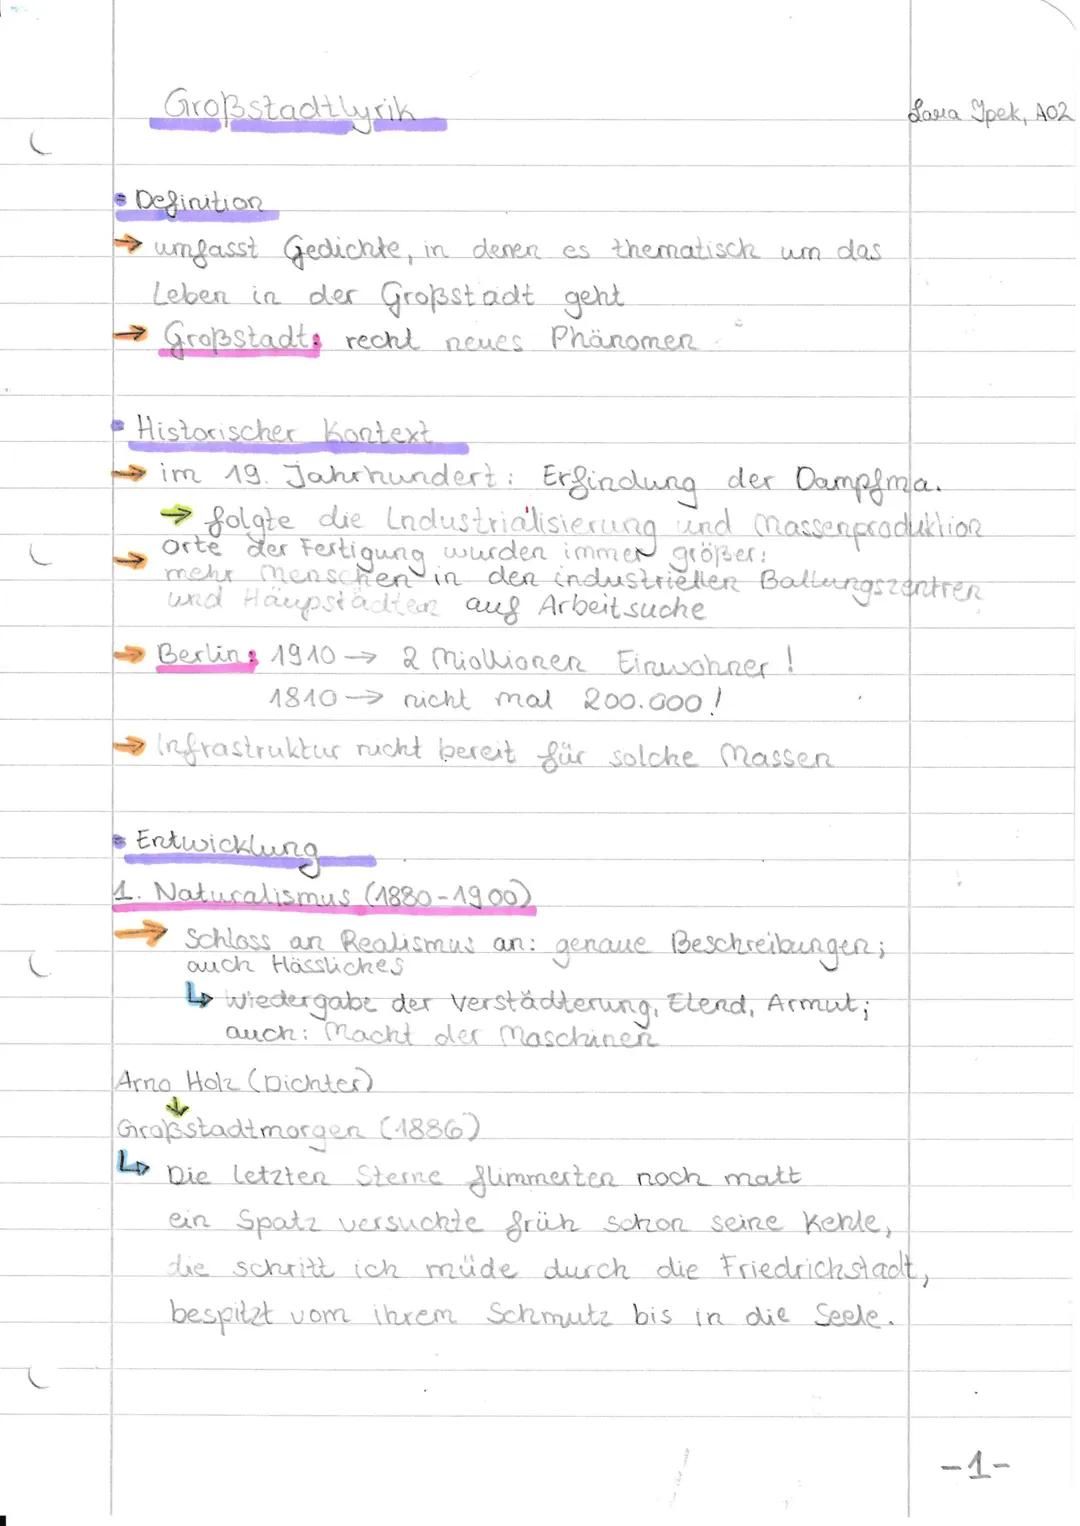 Großstadtlyrik
Lara Ipek, A02
Definition
→ umfasst Gedichte, in denen es thematisch um das
Leben in der Großstadt geht
→ Großstadt: recht neues Phänomen
Historischer Kontext
→ im 19. Jahrhundert: Erfindung der Dampfma.
→ folgte die Industrialisierung und Massenproduktion
→ Orte der Fertigung wurden immer größer:
mehr Menschen in den industriellen Ballungszentren
und Haupstädten auf Arbeitsuche
→ Berlin: 1910 → 2 Miollionen Einwohner!
1810 → nicht mal 200.000!
→ Infrastruktur nicht bereit für solche Massen
Entwicklung
1. Naturalismus (1880-1900)
→ Schloss an Realismus an: genaue Beschreibungen;
auch Hässliches
↳ Wiedergabe der Verstädterung, Elend, Armut;
auch: Macht der Maschinen
Arno Holz (Dichter)
↓
Großstadtmorgen (1886)
↳ Die letzten Sterne flimmerten noch matt
ein Spatz versuchte früh schon seine Kehle,
die schritt ich müde durch die Friedrichstadt,
bespitzt vom ihrem Schmutz bis in die Seele.
-1-